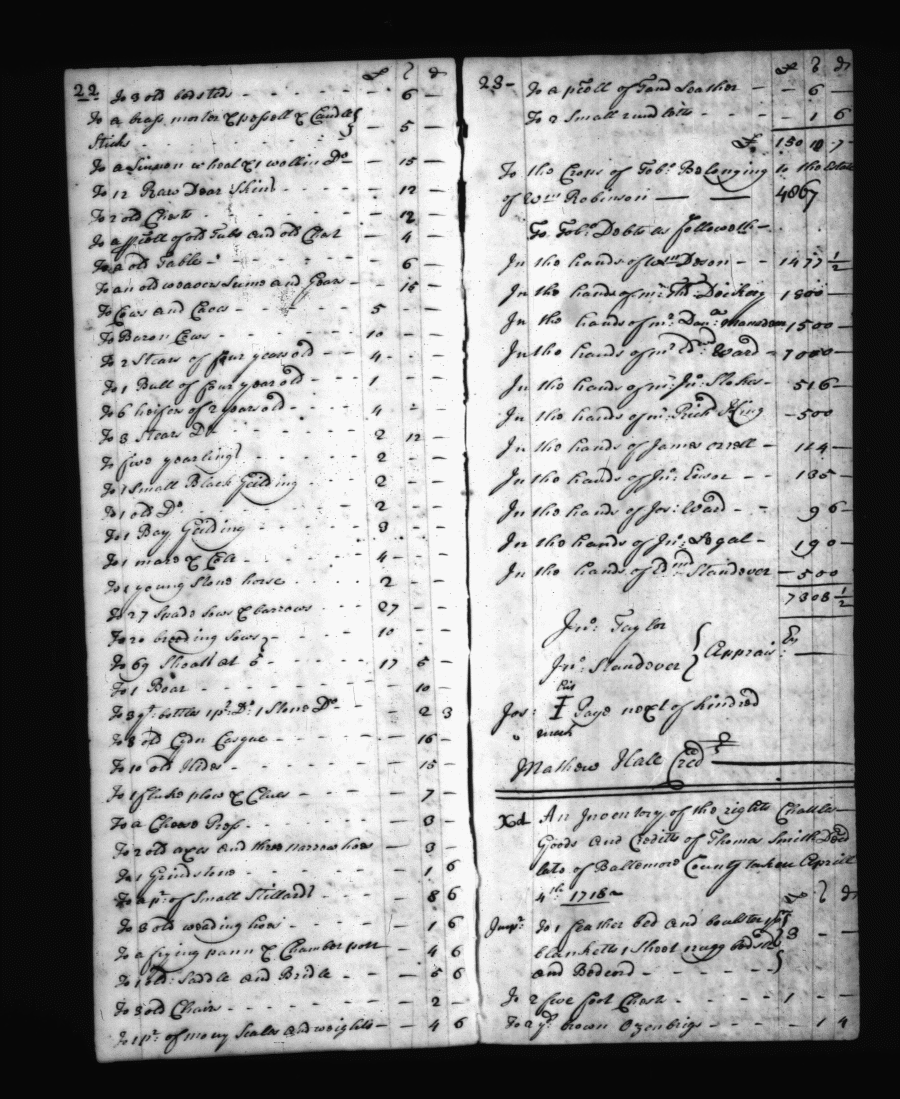 22 £ s d
To 3 old bedsteds - - 6 -
To a brass morter & pessell & Candle
Sticks - 5 -
To a Linnen wheal & 1 wollin Do - 15 -
To 12 Raw Dear Skins - 12 -
To 2 old Chests - 12 -
To a psell of old Tubs and old - 4 -
To a old Table - - 6 -
To an old weavers Lume and Gears - 15 -
To Cows and Caves - 5 - -
To Baron Cows - 10 - -
To 2 Stears of four years old - 4 - -
To 1 Bull of four year old - 1 - -
To 6 heifers of 2 years old - 4 - -
To 3 Stears Do - 2 12 -
To five yearlings - 2 - -
To 1 Small Black Gelding - 2 - -
To 1 old Do - 2 - -
To 1 Bay Gelding - 3 - -
To 1 mare & Colt - 4 - -
To 1 young Stone horse - 2 - -
To 27 Spade Sows & barrows - 27 - -
To 20 breeding Sows - 10 - -
To 69 Shoats at 5s - 17 5 -
To 1 Boar - - 10 -
To 3 qt: bottles 1 pt: Do: 1 Stone Do - 2 3
To 8 old Cydr Casque - - 16 -
To 10 old Hides - - 15 -
To 1 fluke plow & - 7 -
To a Cheese Press - - 3 -
To 2 old axes and three narrow hoes - 3 -
To 1 Grindstone - - 1 6
To a pr: of Small Stillards - 8 6
To 3 old weading hoes - 1 6
To a frying pann & Chamber pott - 4 6
To 1 old: Saddle and Bridle - - 5 6
To 5 old Chairs - - 2 -
To 1 pr: of mony Scales and weights - - 4 6
23 - £ s d
To a psell of Tand Leather - - 6 -
To 2 Small - - 1 6
£ 150 10 7
To the Crops of Tobo: Belonging to the Estate
of Wm Robinson - - 4867
To Tobo: Debts as followeth -
In the hands of Wm Deson - - 1477 1/2
In the hands of mr: Tho: Dockery 1300 -
In the hands of mr: Dan: 1500 -
In the hands of mr Ed: Ward - 1000 -
In the hands of mr: Jno: Stokes - 516 -
In the hands of mr: Rich King - 500
In the hands of James - 114 -
In the hands of Jno: - - 135 -
In the hands of Jos: Ward - - 96 -
In the hands of Jno: Legal - 190 -
In the hands of Edmd Standover - 500
7303 1/2
Jno: Taylor
Jno: Standover } Apprais: By
his
Jos: I Gaye next of kindred
mark
Mathew Hale Cred
Xd An Inventory of the rights Chattles
Goods and Creditts of Thomas Smith Decd
late of Baltemore County taken Aprill
4th 1718 £ s d
Imp: To 1 feather bed and boulster
blanketts 1 Sheet rugg bedsted 3 - -
and Bedcord - - }
To 2 five foot Chests - 1 - -
To 2 yd: brown Ozenbrigs - - 1 4